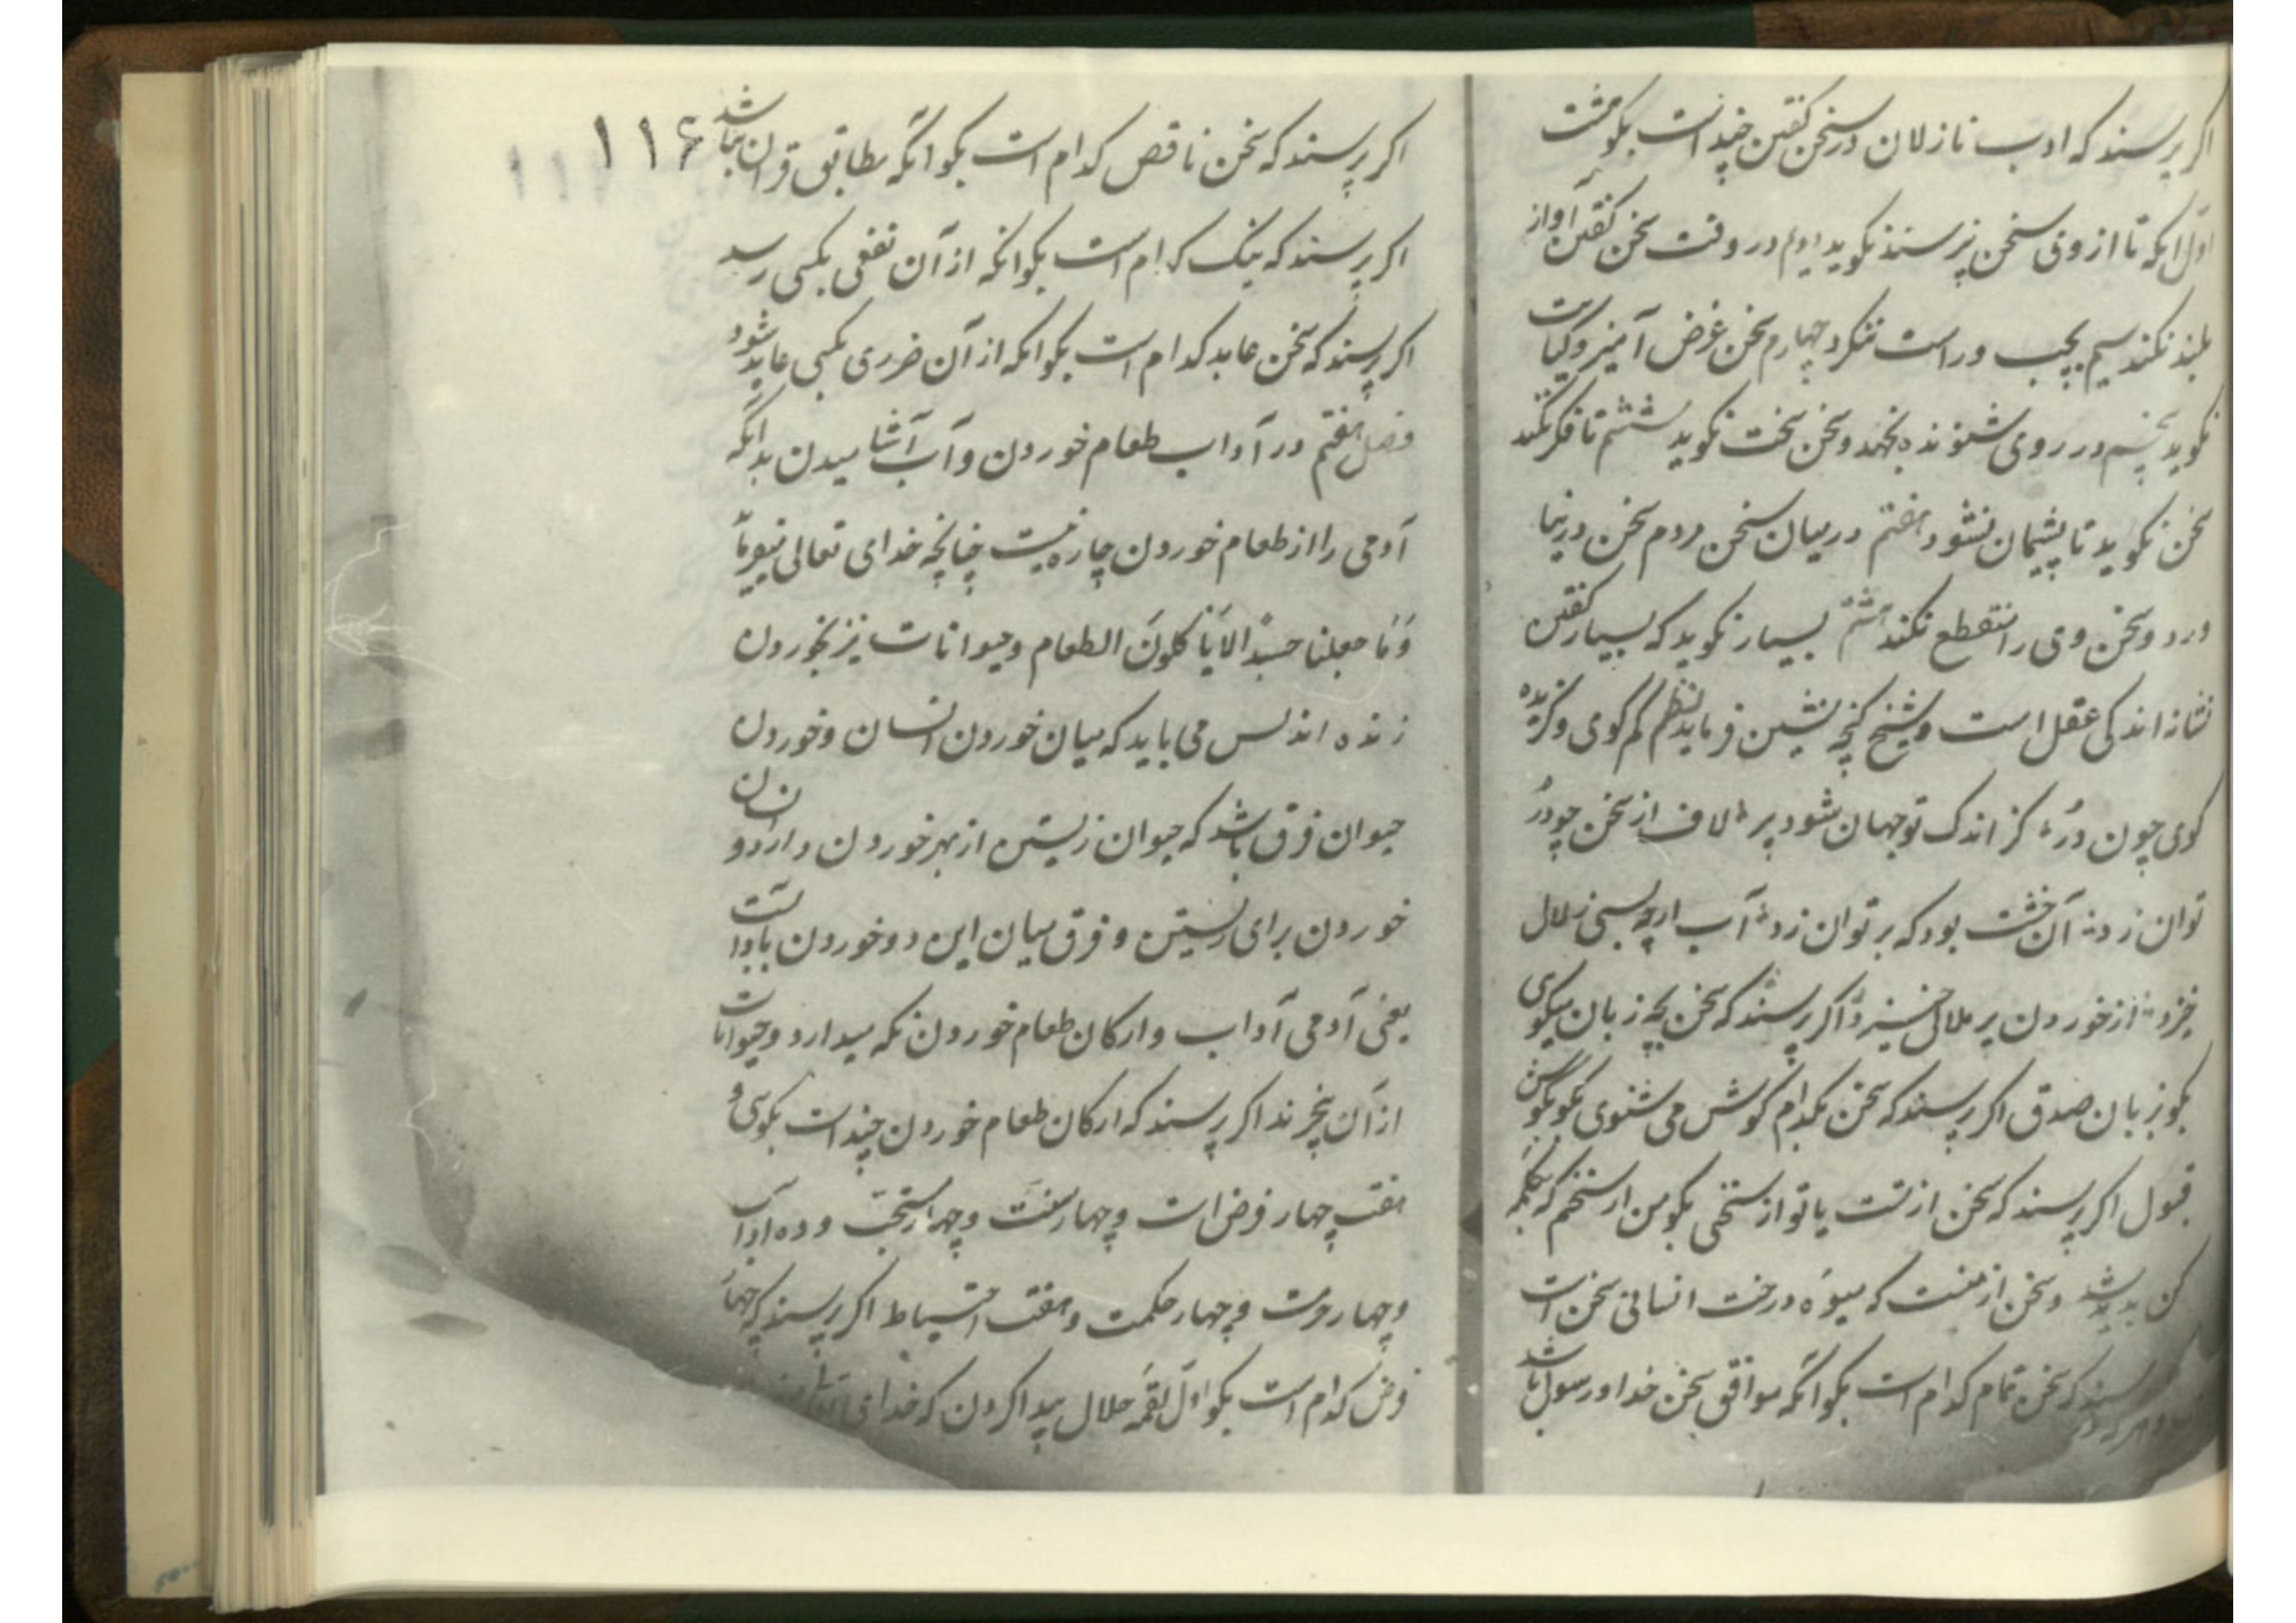 اکر پرسند که ادب نازلان در سخن کفتن چند است بکو هشت
اول انکه تا از وی سخن نپرسند نکوید دویم در وقت سخن کفتن آواز
بلند نکند سیم بچپ و راست ننکرد چهارم سخن غرض آمیز و کنایت
نکوید پنجم در روی شنونده نجهد و سخن سخت نکوید ششم تا فکر نکند
سخن نکوید تا پشیمان نشود هفتم در میان سخن مردم سخن در نیا
ورد و سخن وی را منقطع نکند هشتم بسیار نکوید که بسیار کفتن
نشانه اندکی عقل است و شیخ کنجه نشین فرماید نظم کم کوی و کزیده
کوی چون در کز اندک تو جهان شود پر لاف از سخن چو در
توان زد آن خشت بود که بر توان زد آب ارچه بسی زلال
خیزد از خوردن پر ملال خیزد اکر پرسند که سخن بچه زبان میکوی
بکو بزبان صدق اکر پرسند که سخن بکدام کوش می شنوی بکو بکوش
قبول اکر پرسند که سخن از تست یا تو از سخنی بکو من از سخنم که بکلمه
کن پدید شد و سخن از منست که میوه درخت انسانی سخن است
پرسند که سخن تمام کدام است بکو آنکه موافق سخن خدا و رسول باشد
۱۱۶
اکر پرسند که سخن ناقص کدام است بکو آنکه مطابق قرآن نباشد
اکر پرسند که نیک کدام است بکو انکه از آن نفعی بکسی رسد
اکر پرسند که سخن عابد کدام است بکو انکه از آن ضرری بکسی عاید شود
فصل هفتم در آداب طعام خوردن و آب آشامیدن بدانکه
آدمی را از طعام خوردن چاره نیست چنانچه خدای تعالی میفرماید
وَمَا جعلنا جسداً الا یَأکلونَ الطعام و حیوانات نیز بخوردن
زنده اند لس می باید که میان خوردن انسان و خوردن
حیوان فرق باشد که حیوان زیستن از بهر خوردن دارد و انسان
خوردن برای زیستن و فرق میان این دو خوردن بآداب است
یعنی آدمی آداب و ارکان طعام خوردن نکه میدارد و حیوانات
از آن بیخبرند اکر پرسند که ارکان طعام خوردن چند است بکو سی و
هفت چهار فرض است و چهار سنت و چهار مستحب و ده آداب
و چهار حرمت و چهار حکمت و هفت احتیاط اکر پرسند که چهار
فرض کدام است بکو اول لقمه حلال پیدا کردن که خدای تعالی